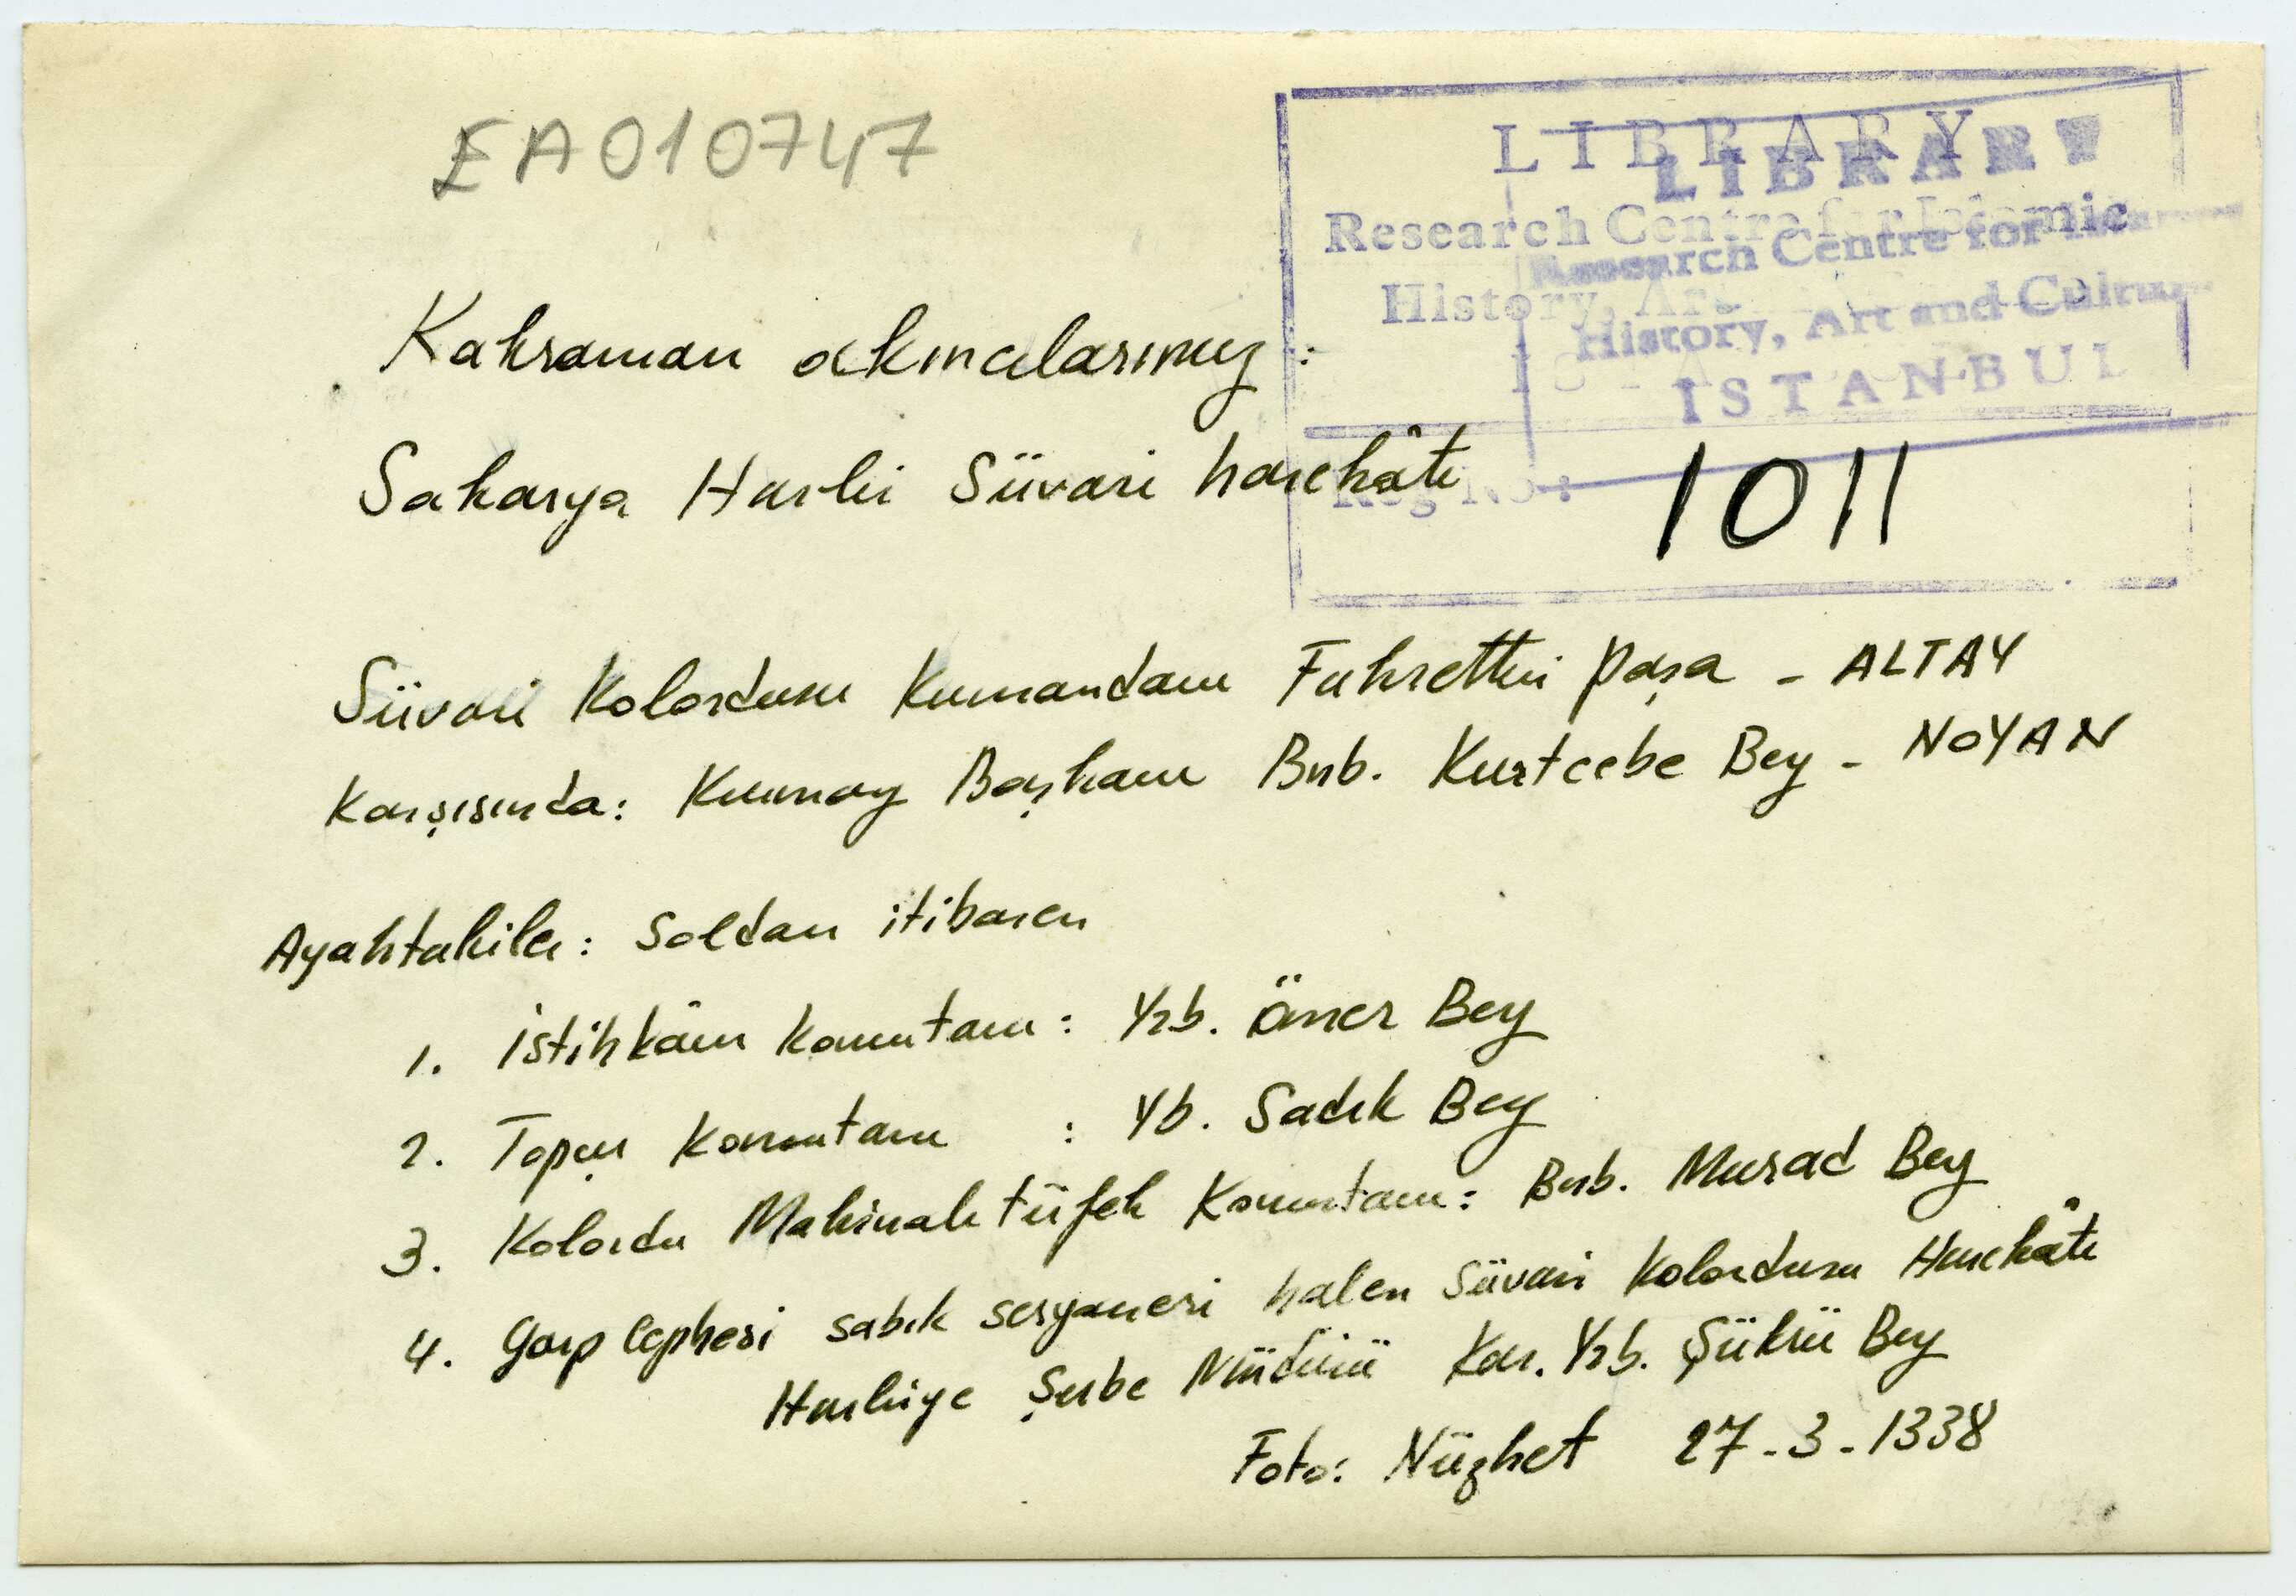 EA010747
LIBRARY
LIBRARY
Research Centre for Islamic
Research Centre for
History, Art
History, Art and Culture
ISTANBUL
Reg No:
1011
Kahraman akıncılarımız:
Sakarya Harbi Süvari harekâtı
Süvari Kolordusu Kumandanı Fahrettin Paşa - ALTAY
Karşısında: Kurmay Başkanı Bnb. Kurtcebe Bey - NOYAN
Ayaktakiler: Soldan itibaren
1. İstihkâm Komutanı: Yzb. Ömer Bey
2. Topçu Komutanı : Yb. Sadık Bey
3. Kolordu Makinalı tüfek Komutanı: Bnb. Murad Bey
4. Garp Cephesi sabık seryaveri halen Süvari Kolordusu Harekâtı
Harbiye Şube Müdürü Kur. Yzb. Şükrü Bey
Foto: Nüzhet 27-3-1338